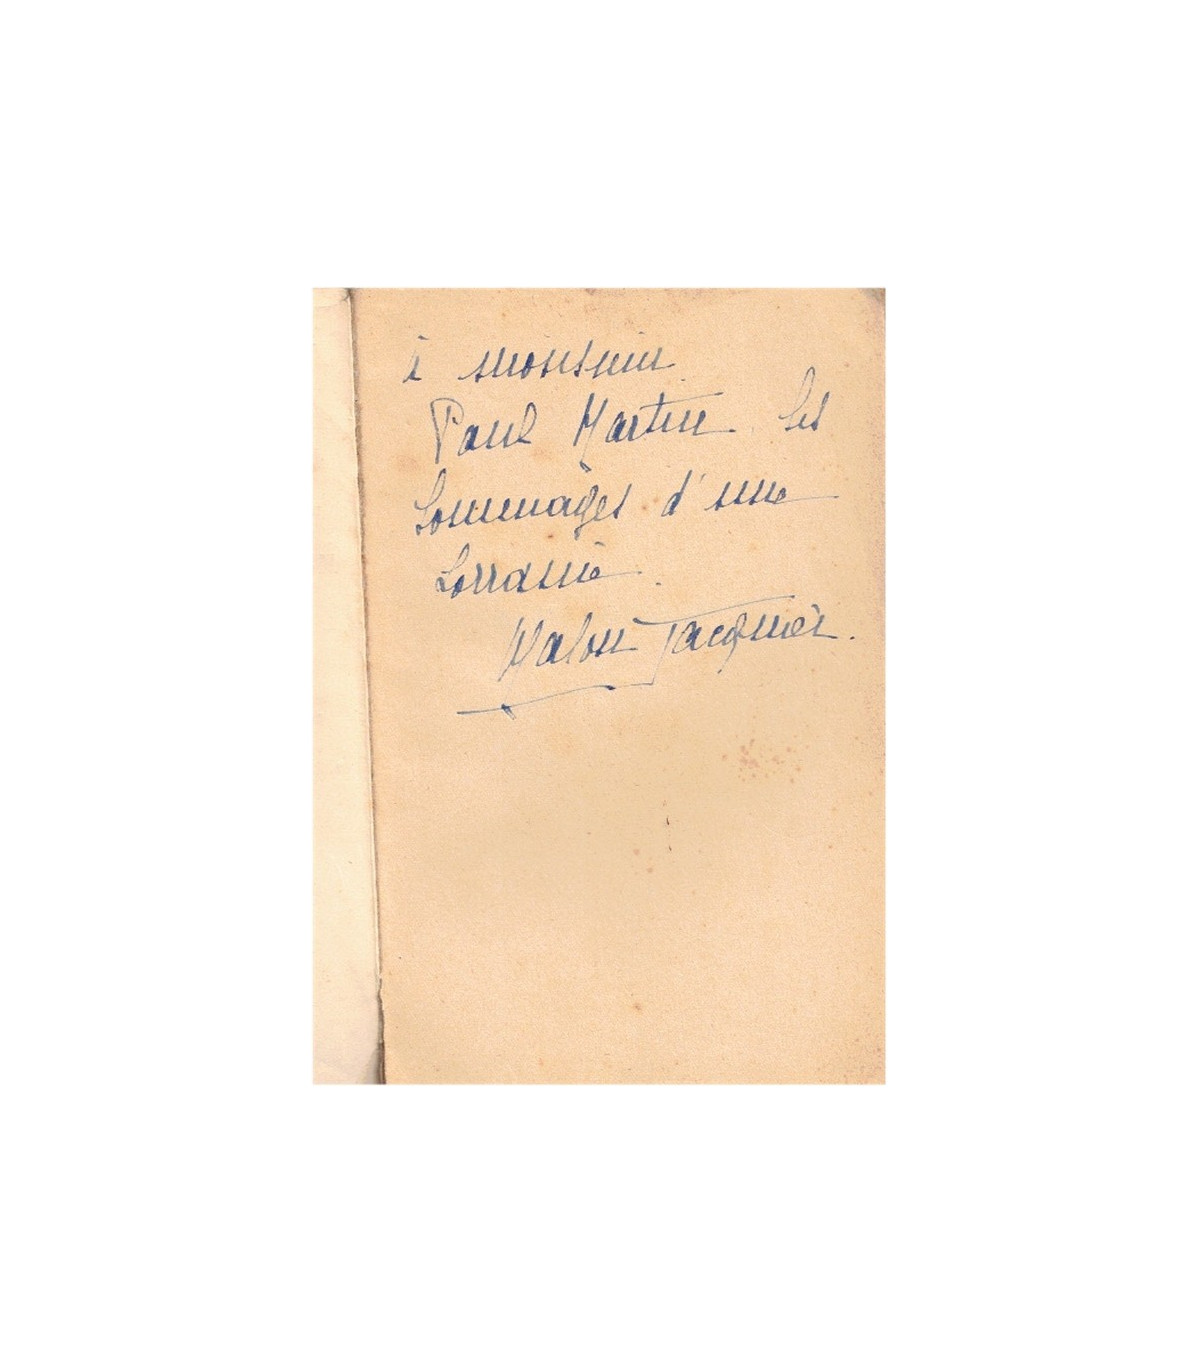 à monsieur
Paul Martin les
hommages d'une
Lorraine.
Malou Jacquier.